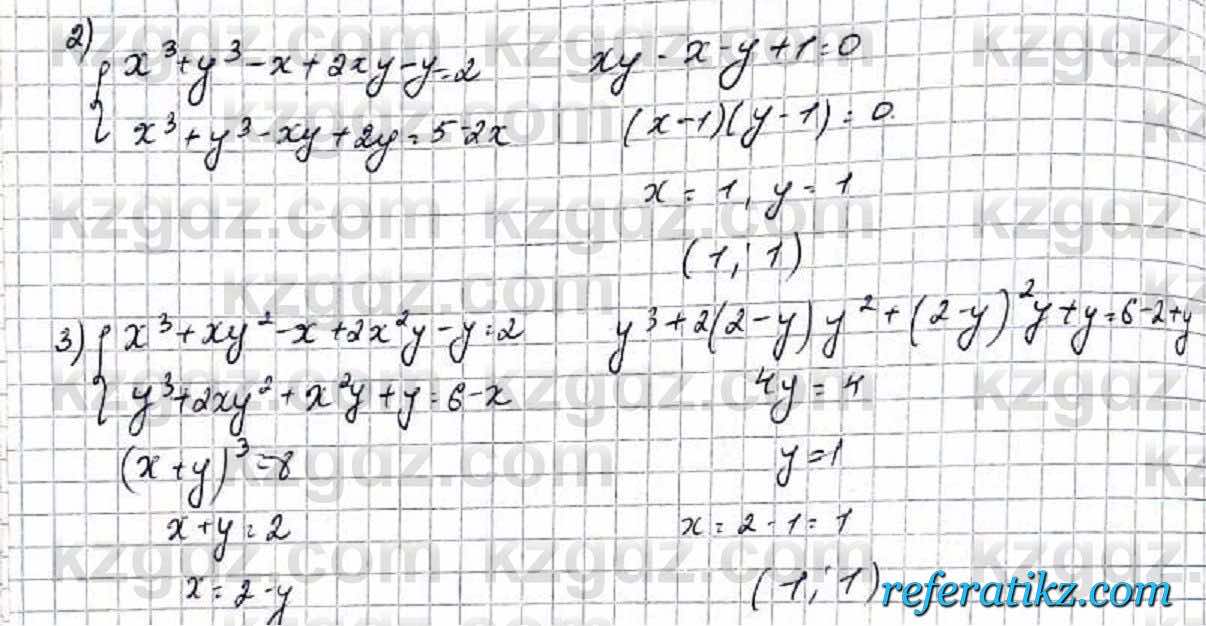 2) { x³+y³-x+2xy-y=2
x³+y³-xy+2y=5-2x
xy-x-y+1=0
(x-1)(y-1)=0.
x=1, y=1
(1; 1)
3) { x³+xy²-x+2x²y-y=2
y³+2xy²+x²y+y=6-x
(x+y)³=8
x+y=2
x=2-y
y³+2(2-y)y²+(2-y)²y+y=6-2+y
4y=4
y=1
x=2-1=1
(1; 1)
kzgdz.com
referatikz.com